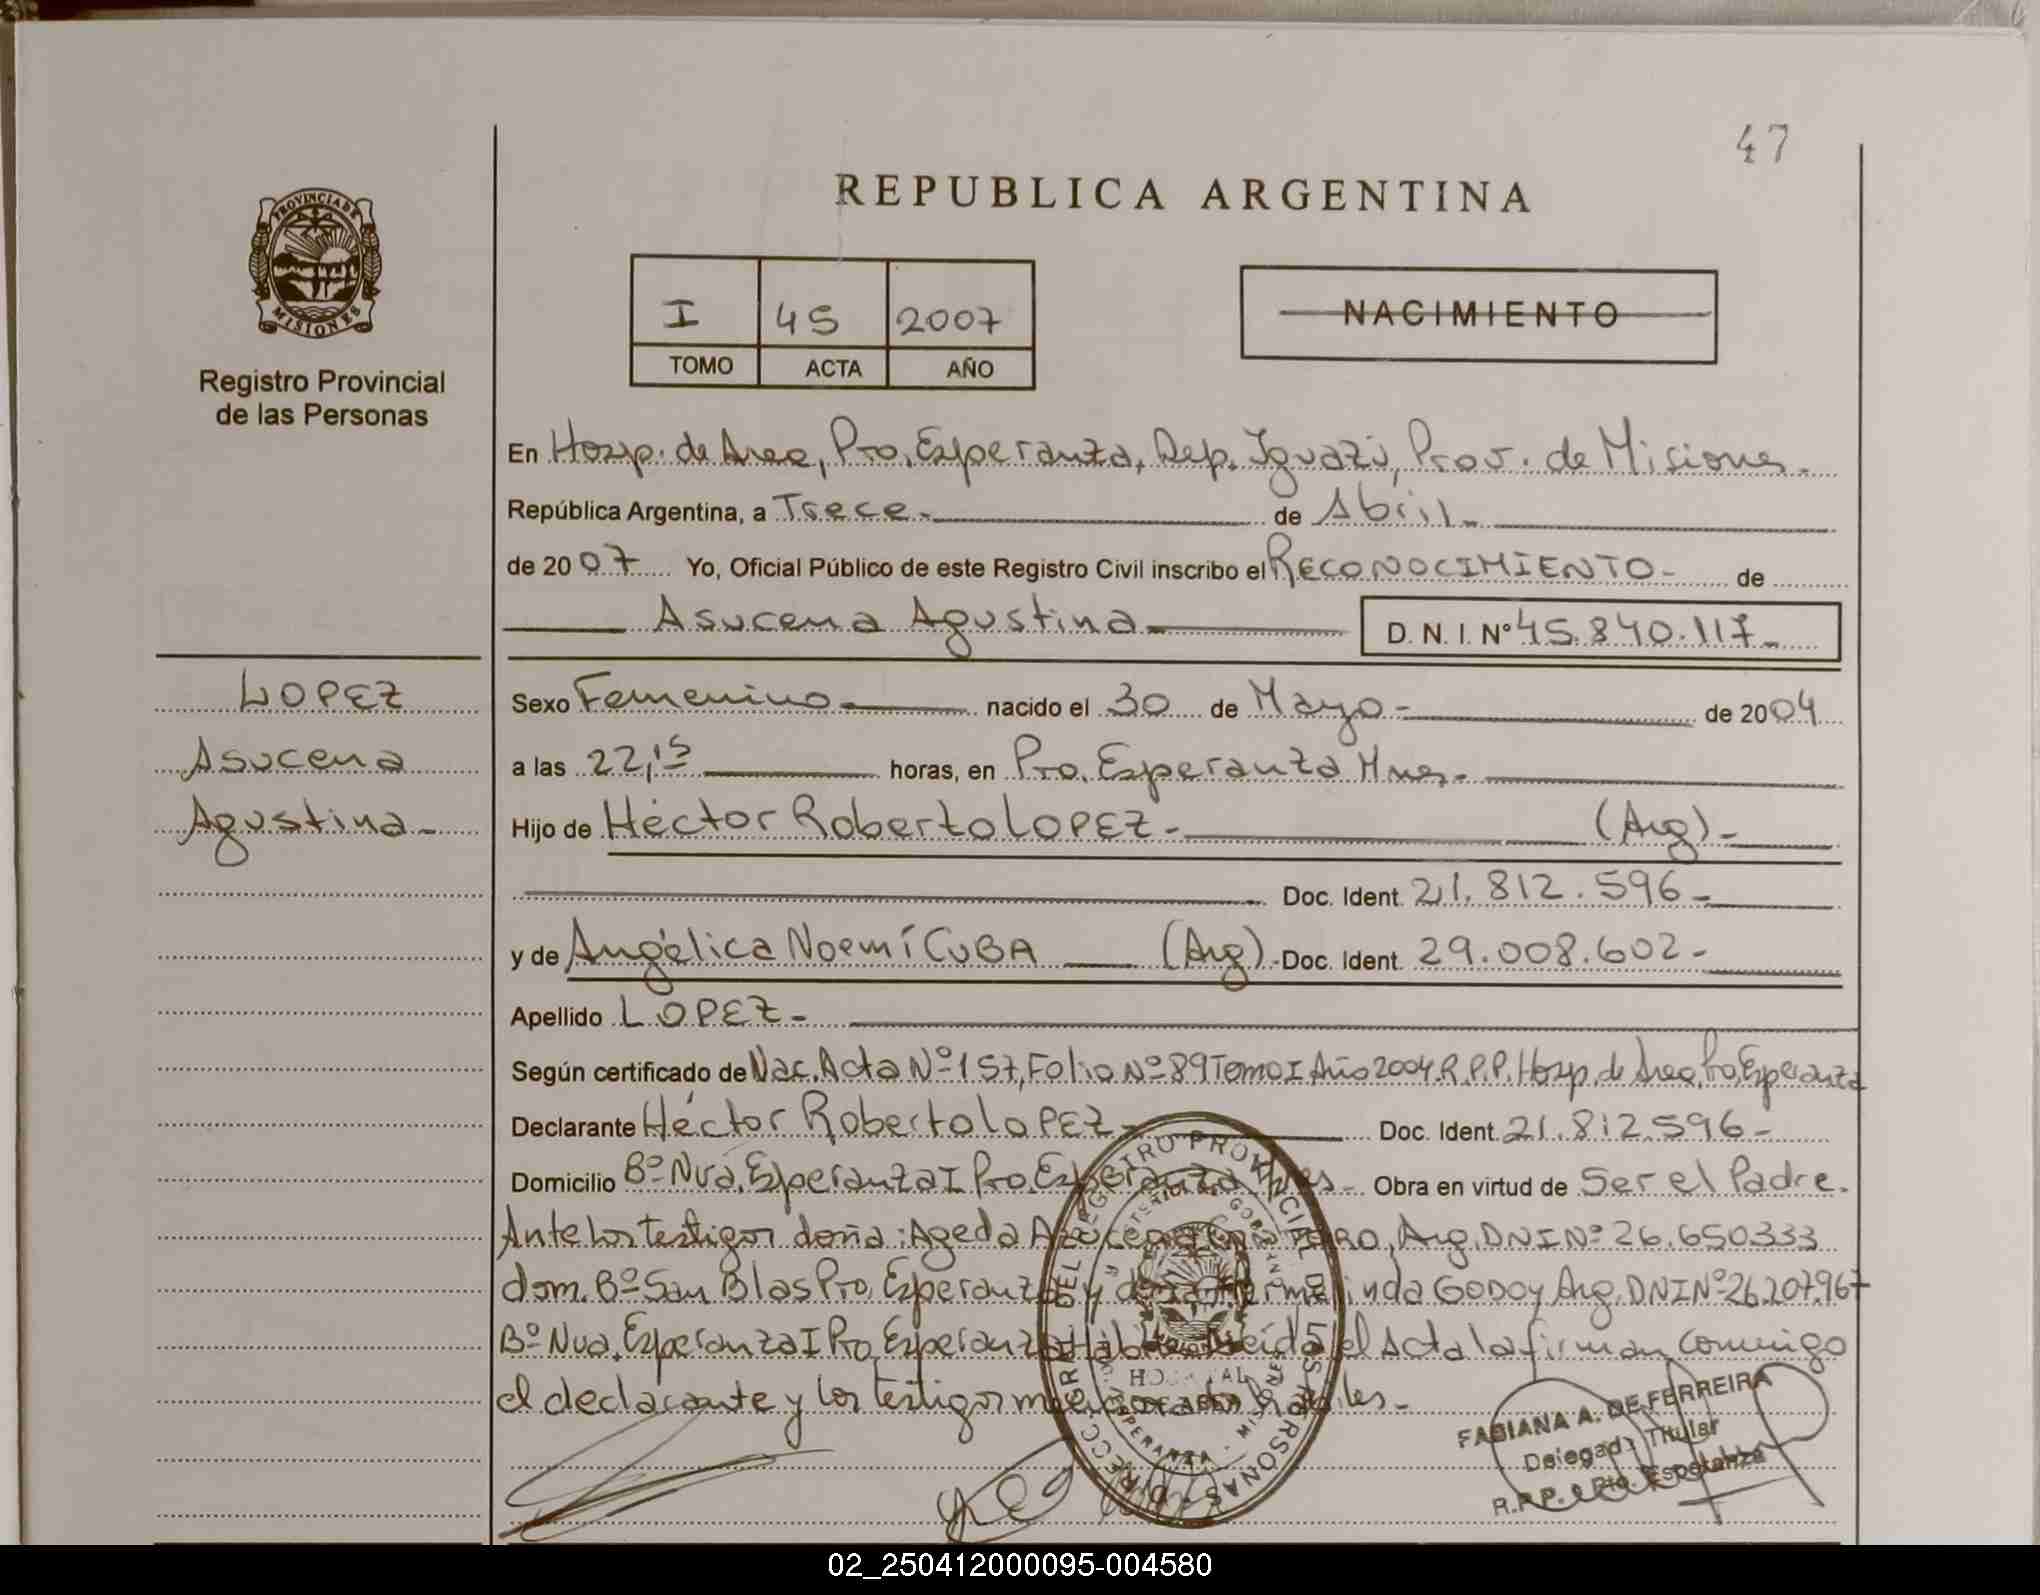 47
REPUBLICA ARGENTINA
PROVINCIA DE
MISIONES
Registro Provincial
de las Personas
I 45 2007
TOMO ACTA AÑO
NACIMIENTO
En Hosp. de Area, Pto. Esperanza, Dep. Iguazú, Prov. de Misiones.
República Argentina, a Trece.- de Abril-
de 2007 Yo, Oficial Público de este Registro Civil inscribo el RECONOCIMIENTO- de
Asucena Agustina- D. N. I. Nº 45.840.117-
LOPEZ
Asucena
Agustina-
Sexo Femenino- nacido el 30 de Mayo- de 2004
a las 22,15 horas, en Pto. Esperanza Mnes.-
Hijo de Héctor Roberto LOPEZ- (Arg)-
Doc. Ident. 21.812.596-
y de Angélica Noemí CUBA (Arg)- Doc. Ident. 29.008.602-
Apellido LOPEZ-
Según certificado de Nac. Acta Nº 157, Folio Nº 89 Tomo I Año 2004. R.P.P. Hosp. de Area, Pto, Esperanza
Declarante Héctor Roberto LOPEZ- Doc. Ident. 21.812.596-
Domicilio Bº Nva. Esperanza I Pto. Esperanza Mnes- Obra en virtud de Ser el Padre.
Ante los testigos doña: Ageda Arg. DNI Nº 26.650333
dom. Bº San Blas Pto, Esperanza y doña Hermelinda GODOY Arg, DNI Nº 26.207.967
Bº Nva. Esperanza I Pto, Esperanza leída el Acta la firman conmigo
el declarante y los testigos
DIRECC. GRAL. DEL REGISTRO PROVINCIAL DE LAS PERSONAS
HOSPITAL
DE AREA
FABIANA A. DE FERREIRA
Delegada Titular
R.P.P. Pto. Esperanza
02_250412000095-004580